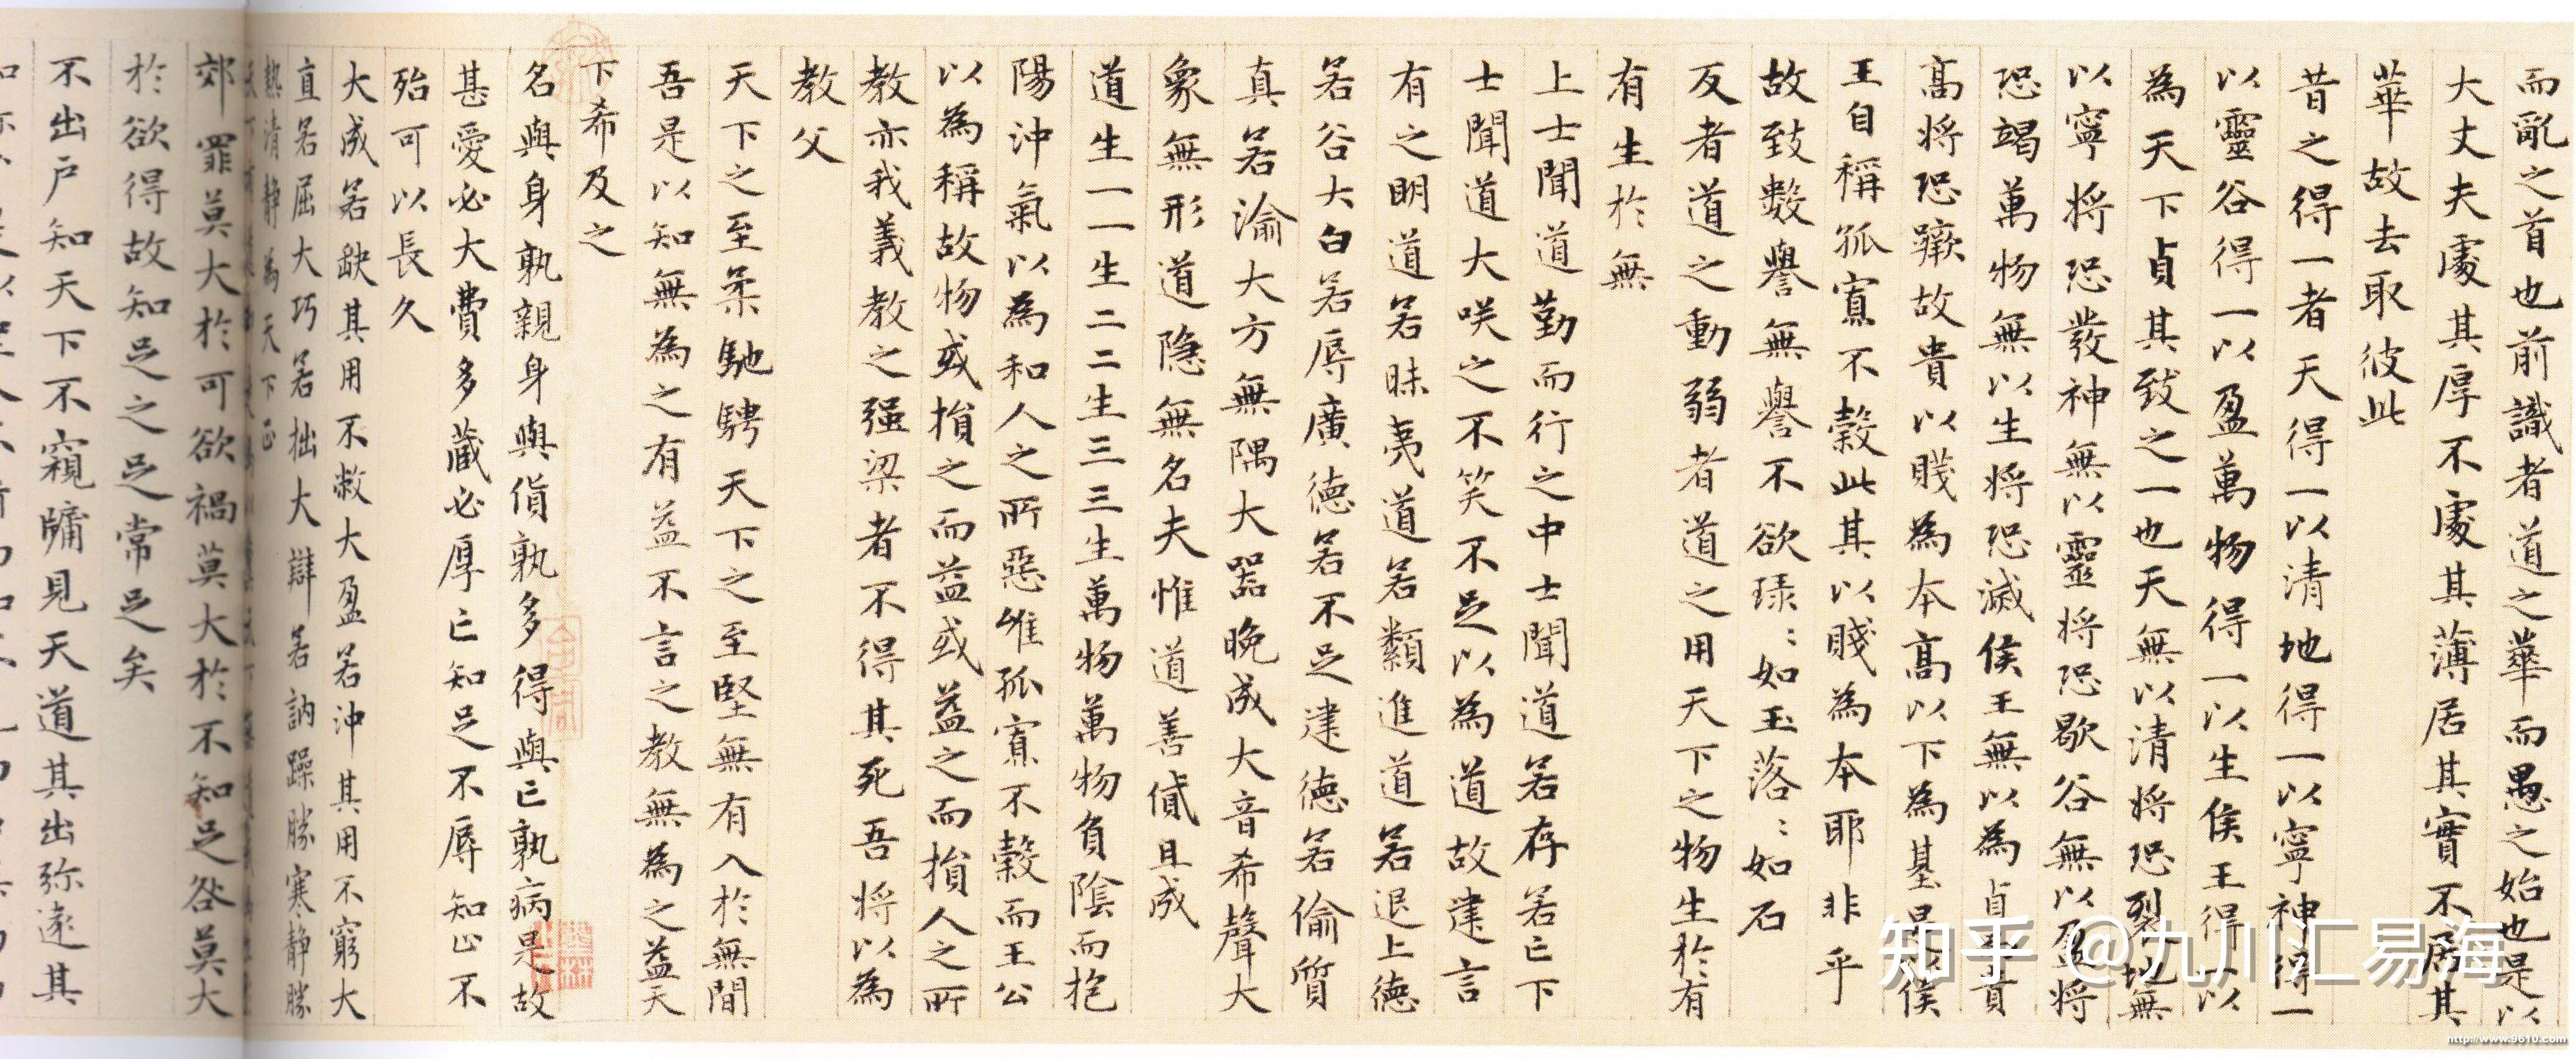 而亂之首也前識者道之華而愚之始也是以
大丈夫處其厚不處其薄居其實不居其
華故去取彼此
昔之得一者天得一以清地得一以寧神得一
以靈谷得一以盈萬物得一以生侯王得一以
為天下貞其致之一也天無以清將恐裂地無
以寧將恐發神無以靈將恐歇谷無以盈將
恐竭萬物無以生將恐滅侯王無以為貞貴
高將恐蹶故貴以賤為本高以下為基是以侯
王自稱孤寡不穀此其以賤為本耶非乎
故致數譽無譽不欲琭〻如玉落〻如石
反者道之動弱者道之用天下之物生於有
有生於無
上士聞道勤而行之中士聞道若存若亡下
士聞道大咲之不笑不足以為道故建言
有之明道若昧夷道若纇進道若退上德
若谷大白若辱廣德若不足建德若偷質
真若渝大方無隅大器晚成大音希聲大
象無形道隱無名夫惟道善貸且成
道生一一生二二生三三生萬物萬物負陰而抱
陽沖氣以為和人之所惡惟孤寡不穀而王公
以為稱故物或損之而益或益之而損人之所
教亦我義教之强梁者不得其死吾將以為
教父
天下之至柔馳騁天下之至堅無有入於無間
吾是以知無為之有益不言之教無為之益天
下希及之
名與身孰親身與貨孰多得與亡孰病是故
甚愛必大費多藏必厚亡知足不辱知止不
殆可以長久
大成若缺其用不敝大盈若沖其用不窮大
直若屈大巧若拙大辯若訥躁勝寒靜勝
熱清靜為天下正
郊罪莫大於可欲禍莫大於不知足咎莫大
於欲得故知足之足常足矣
不出戶知天下不窺牖見天道其出弥遠其
知乎 @九川汇易海
http://www.9610.com